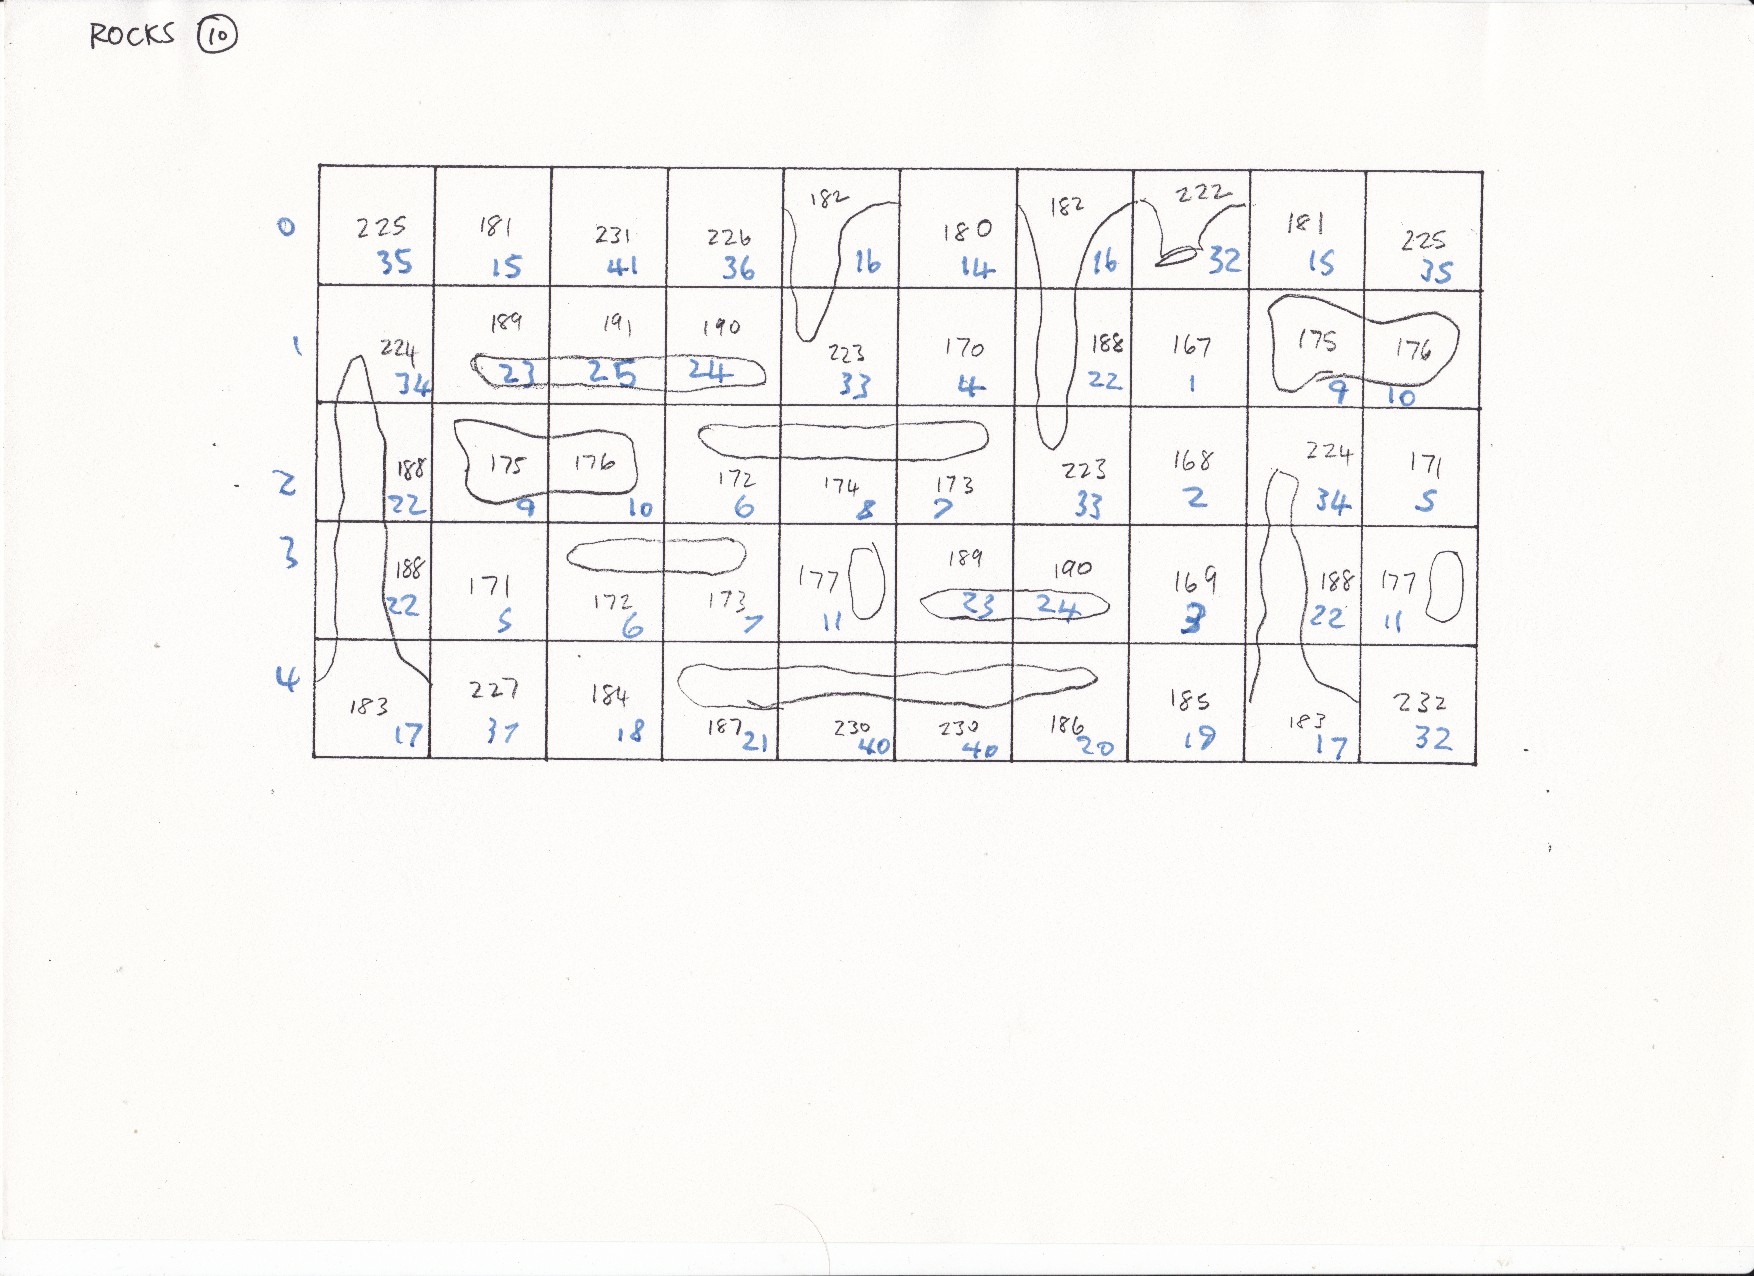 ROCKS 10
225 181 231 226 182 180 182 222 181 225
0 35 15 41 36 16 14 16 32 15 35
224 189 191 190 223 170 188 167 175 176
1 34 23 25 24 33 4 22 1 9 10
188 175 176 172 174 173 223 168 224 171
2 22 9 10 6 8 7 33 2 34 5
188 171 172 173 177 189 190 169 188 177
3 22 5 6 7 11 23 24 3 22 11
183 227 184 187 230 230 186 185 183 232
4 17 37 18 21 40 40 20 19 17 32